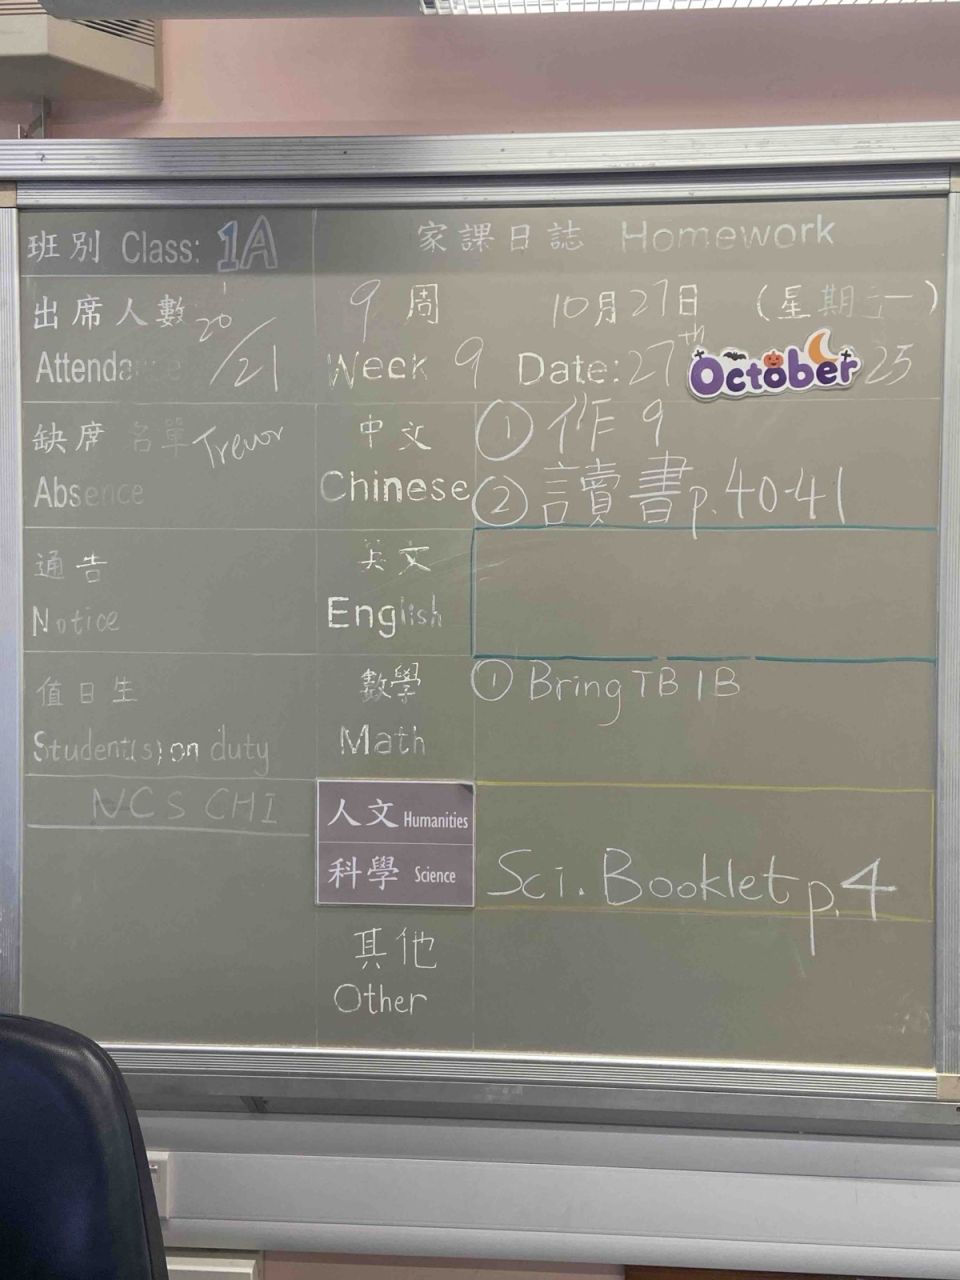 班別 Class: 1A
家課日誌 Homework
出席人數 20/21
Attenda
9 周 10月27日 (星期一)
Week 9 Date: 27th October 25
缺席名單 Trevor
Absence
中文
Chinese
① 作 9
② 讀書 p.40-41
通告
Notice
英文
English
值日生
Student(s) on duty
數學
Math
① Bring TB 1B
NCS CHI
人文 Humanities
科學 Science
Sci. Booklet p.4
其他
Other